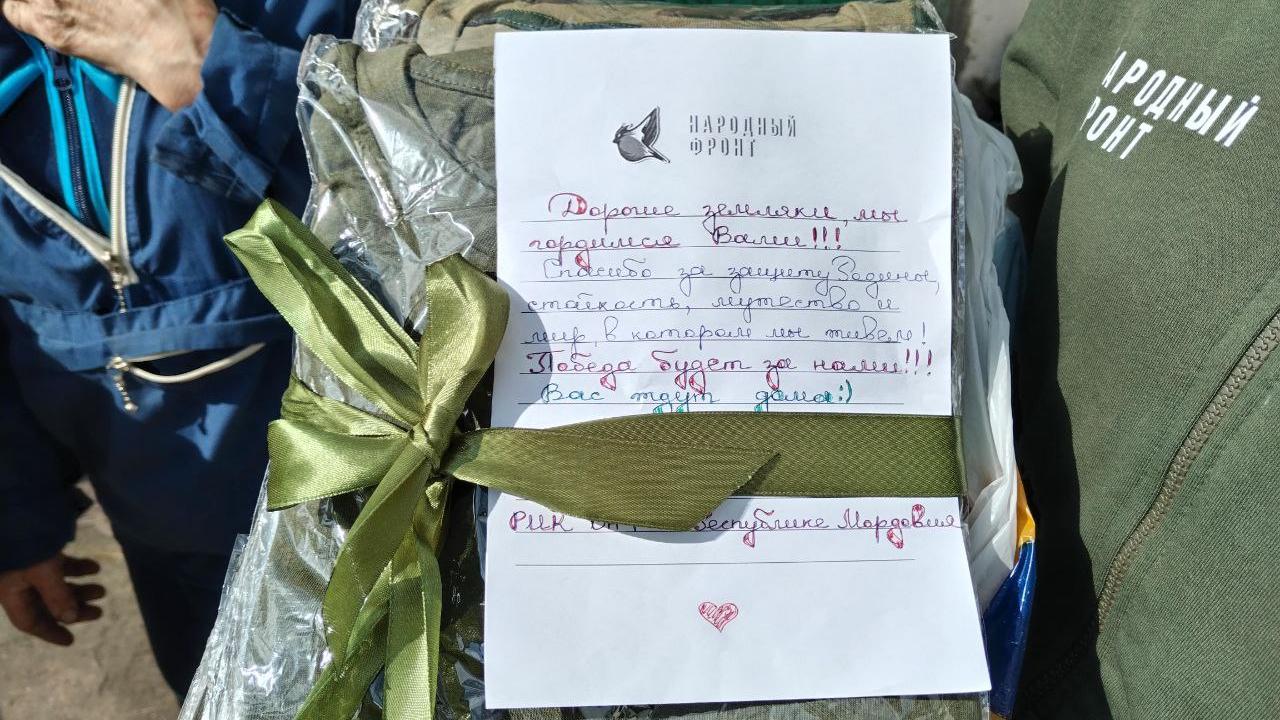 НАРОДНЫЙ
ФРОНТ
Дорогие земляки, мы
гордимся Вами!!!
Спасибо за защиту Родины,
стойкость, мужество и
мир, в котором мы живем!
Победа будет за нами!!!
Вас ждут дома:)
РИК Республике Мордовия
АРОДНЫЙ
РОНТ